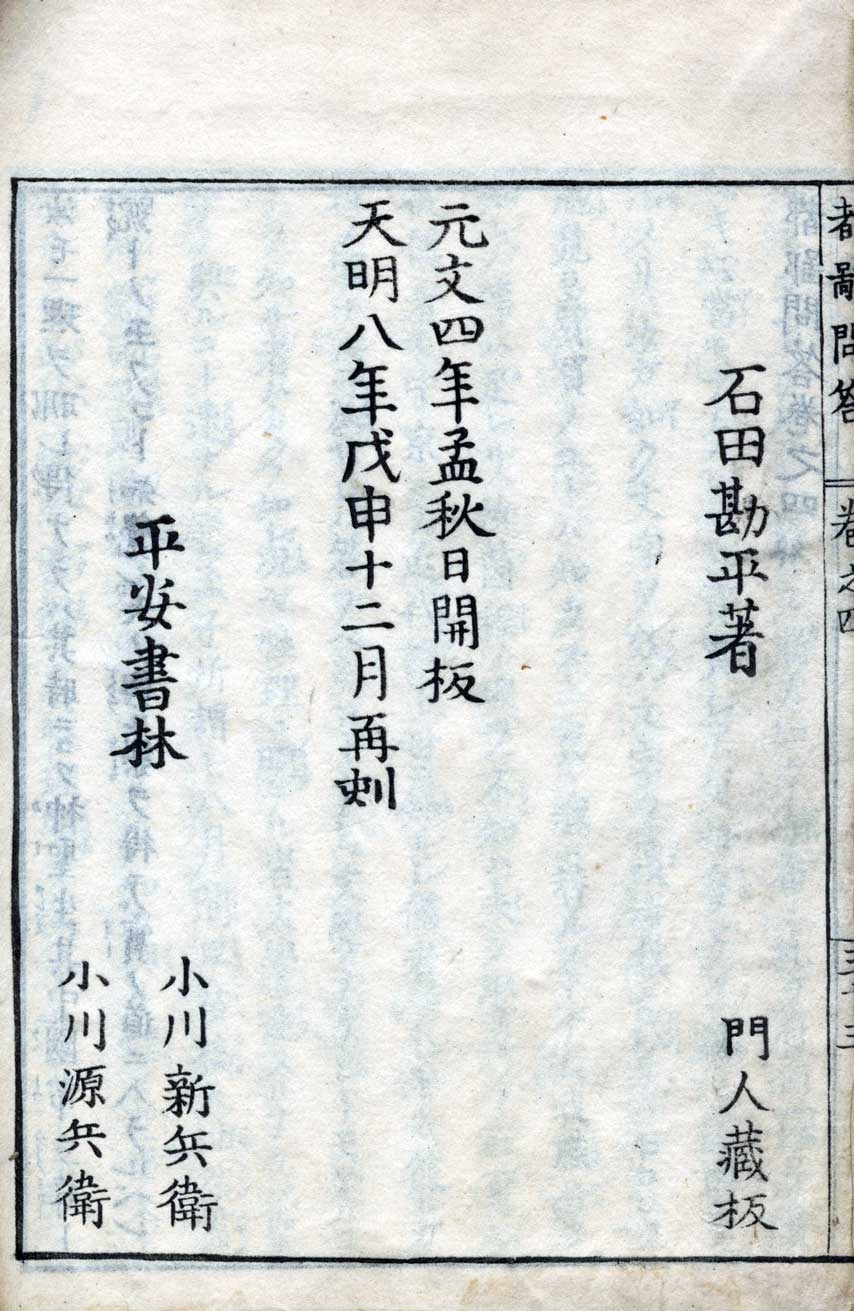 都鄙問答 卷之四
石田勘平著 門人藏板
元文四年孟秋日開板
天明八年戊申十二月再刻
平安書林
小川新兵衛
小川源兵衛